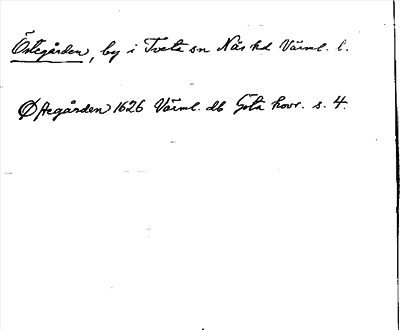 Östegården, by i Tveta sn Näs hd Värml. l.
Øſtegården 1626 Värml. db Göta hovr. s. 4.